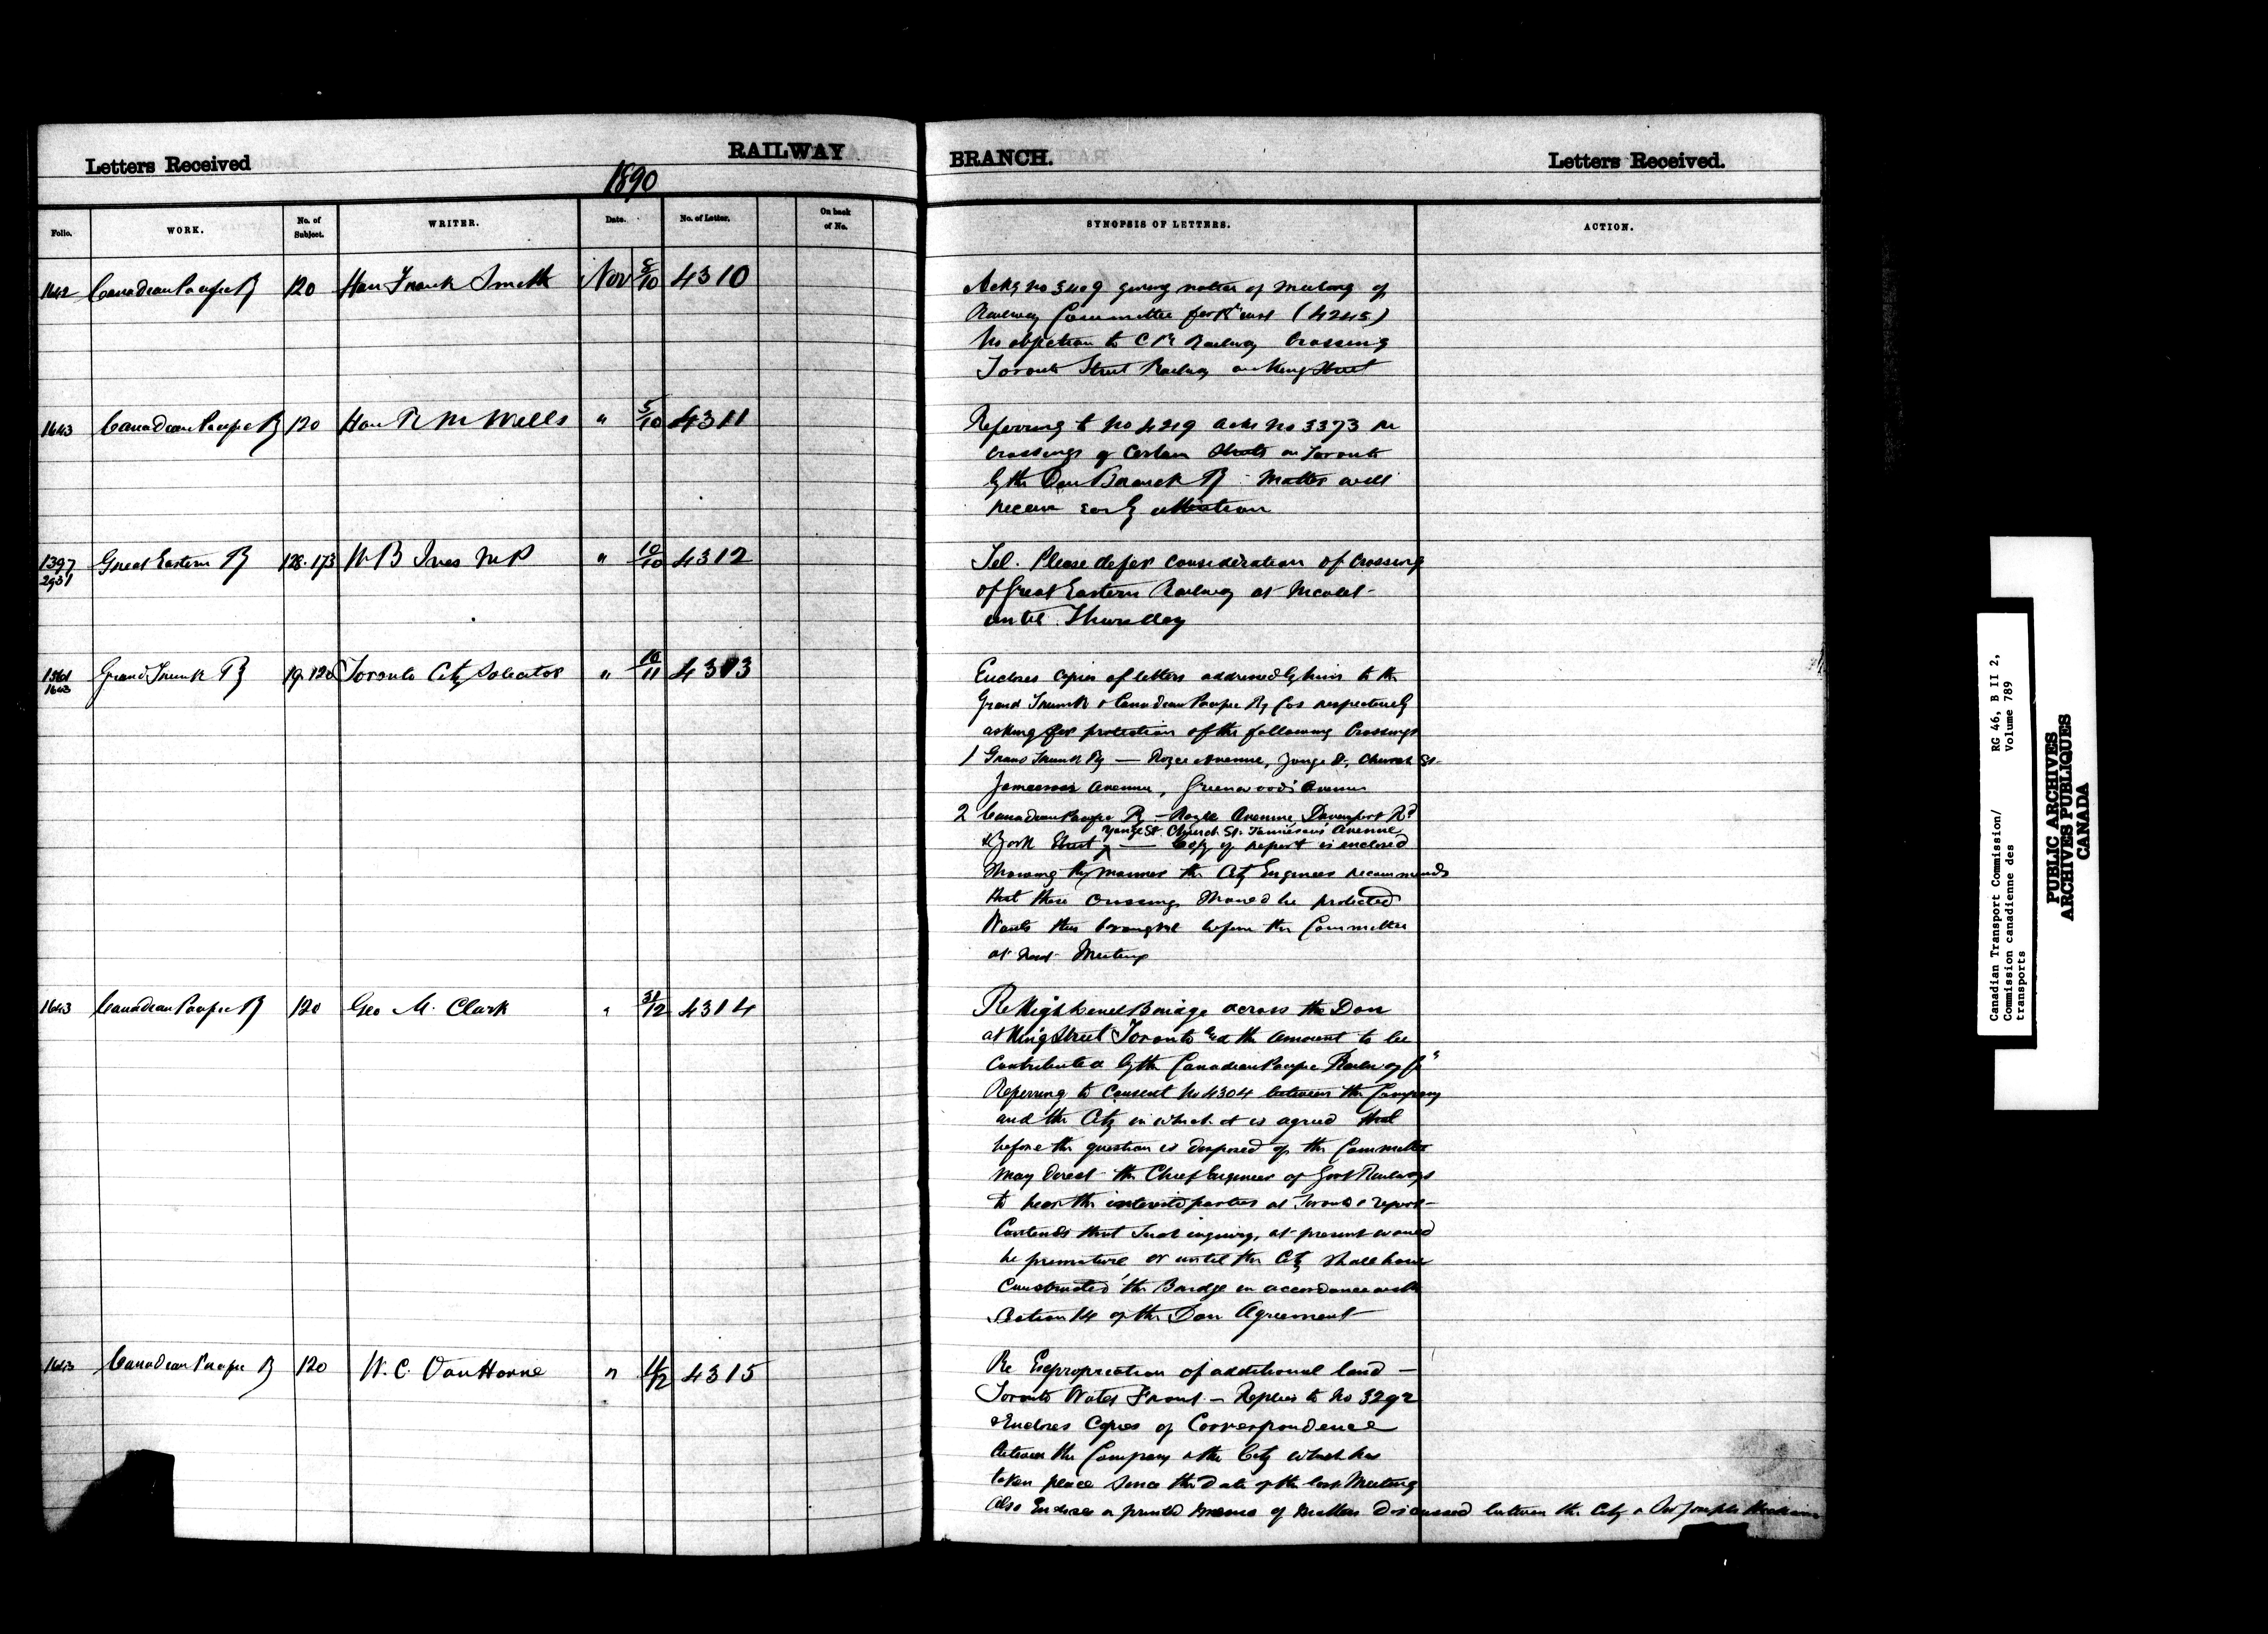 Letters Received
RAILWAY
BRANCH.
Letters Received.
1890
Folio.
WORK.
No. of Subject.
WRITER.
Date.
No. of Letter.
On back of No.
SYNOPSIS OF LETTERS.
ACTION.
1642 Canadian Pacific Ry 120 Hon Frank Smith Nov 8/10 4310
Acks no 3409 giving notice of meeting of
Railway Committee for inst (4245)
No objection to C P Railway Crossing
Toronto Street Railway on King Street
1643 Canadian Pacific Ry 120 Hon R M Wells " 5/10 4311
Referring to No 4219 acks no 3373 re
crossings of certain streets in Toronto
by the Don Branch Ry Matter will
receive early attention
1397 2931 Great Eastern Ry 128. 173 W B Ives M P " 10/10 4312
Tel. Please defer consideration of crossing
of Great Eastern Railway at Nicolet
until Thursday
1643 Grand Trunk Ry 19. 120 Toronto City Solicitor " 10/11 4313
Encloses copies of letters addressed by him to the
Grand Trunk & Canadian Pacific Ry Cos respectively
asking for protection of the following Crossings
1 Grand Trunk Ry — Avenue, Yonge St, Church St
Jamiesons Avenue, Greenwoods Avenue
2 Canadian Pacific Ry — Avenue, Davenport Rd
Yonge St. Church St. Jamiesons Avenue
& York Street — Copy of report is enclosed
Showing the manner the City Engineer recommends
that these crossings should be protected
Wants this brought before the Committee
at next Meeting
1643 Canadian Pacific Ry 120 Geo M. Clark " 31/12 4314
Re High Level Bridge across the Don
at King Street Toronto and the amount to be
contributed by the Canadian Pacific Railway Co
Referring to Consent No 4304 between the Company
and the City in which it is agreed that
before the question is disposed of the Committee
may direct the Chief Engineer of Govt Railways
to hear the interested parties at Toronto & report
Contends that such inquiry, at present would
be premature or until the City shall have
constructed the Bridge in accordance with
Section 14 of the Don Agreement
1643 Canadian Pacific Ry 120 W. C. Van Horne " 11/12 4315
Re Expropriation of additional land —
Toronto Water Front — Replies to No 3292
& Encloses Copies of Correspondence
between the Company & the City which has
taken place since the date of the last Meeting
Also Encloses a printed memo of matters discussed between the City & Sir Joseph Hickson
Canadian Transport Commission/
Commission canadienne des
transports
RG 46, B II 2,
Volume 789
PUBLIC ARCHIVES
ARCHIVES PUBLIQUES
CANADA